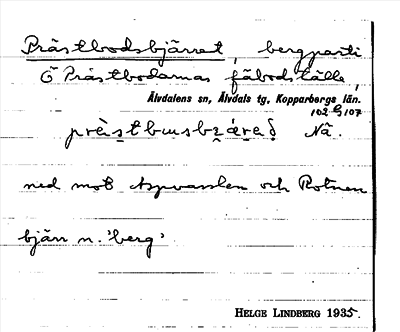 Prästbodsbjärret, bergparti
Ö Prästbodarnas fäbodställe,
Älvdalens sn, Älvdals tg, Kopparbergs län.
102 G 107
Nå.
ned mot och Rotnen
bjärr n. 'berg'
HELGE LINDBERG 1935.